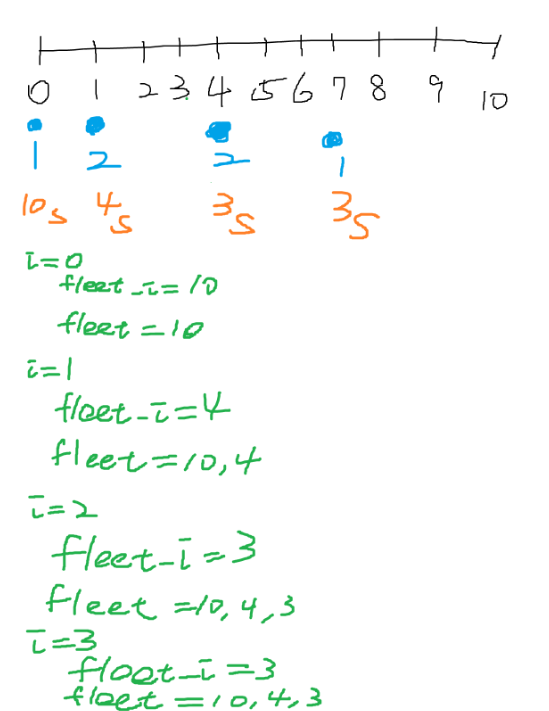 0 1 2 3 4 5 6 7 8 9 10
1 2 2 1
10s 4s 3s 3s
i=0
fleet_i=10
fleet=10
i=1
fleet_i=4
fleet=10,4
i=2
fleet_i=3
fleet=10,4,3
i=3
fleet_i=3
fleet=10,4,3